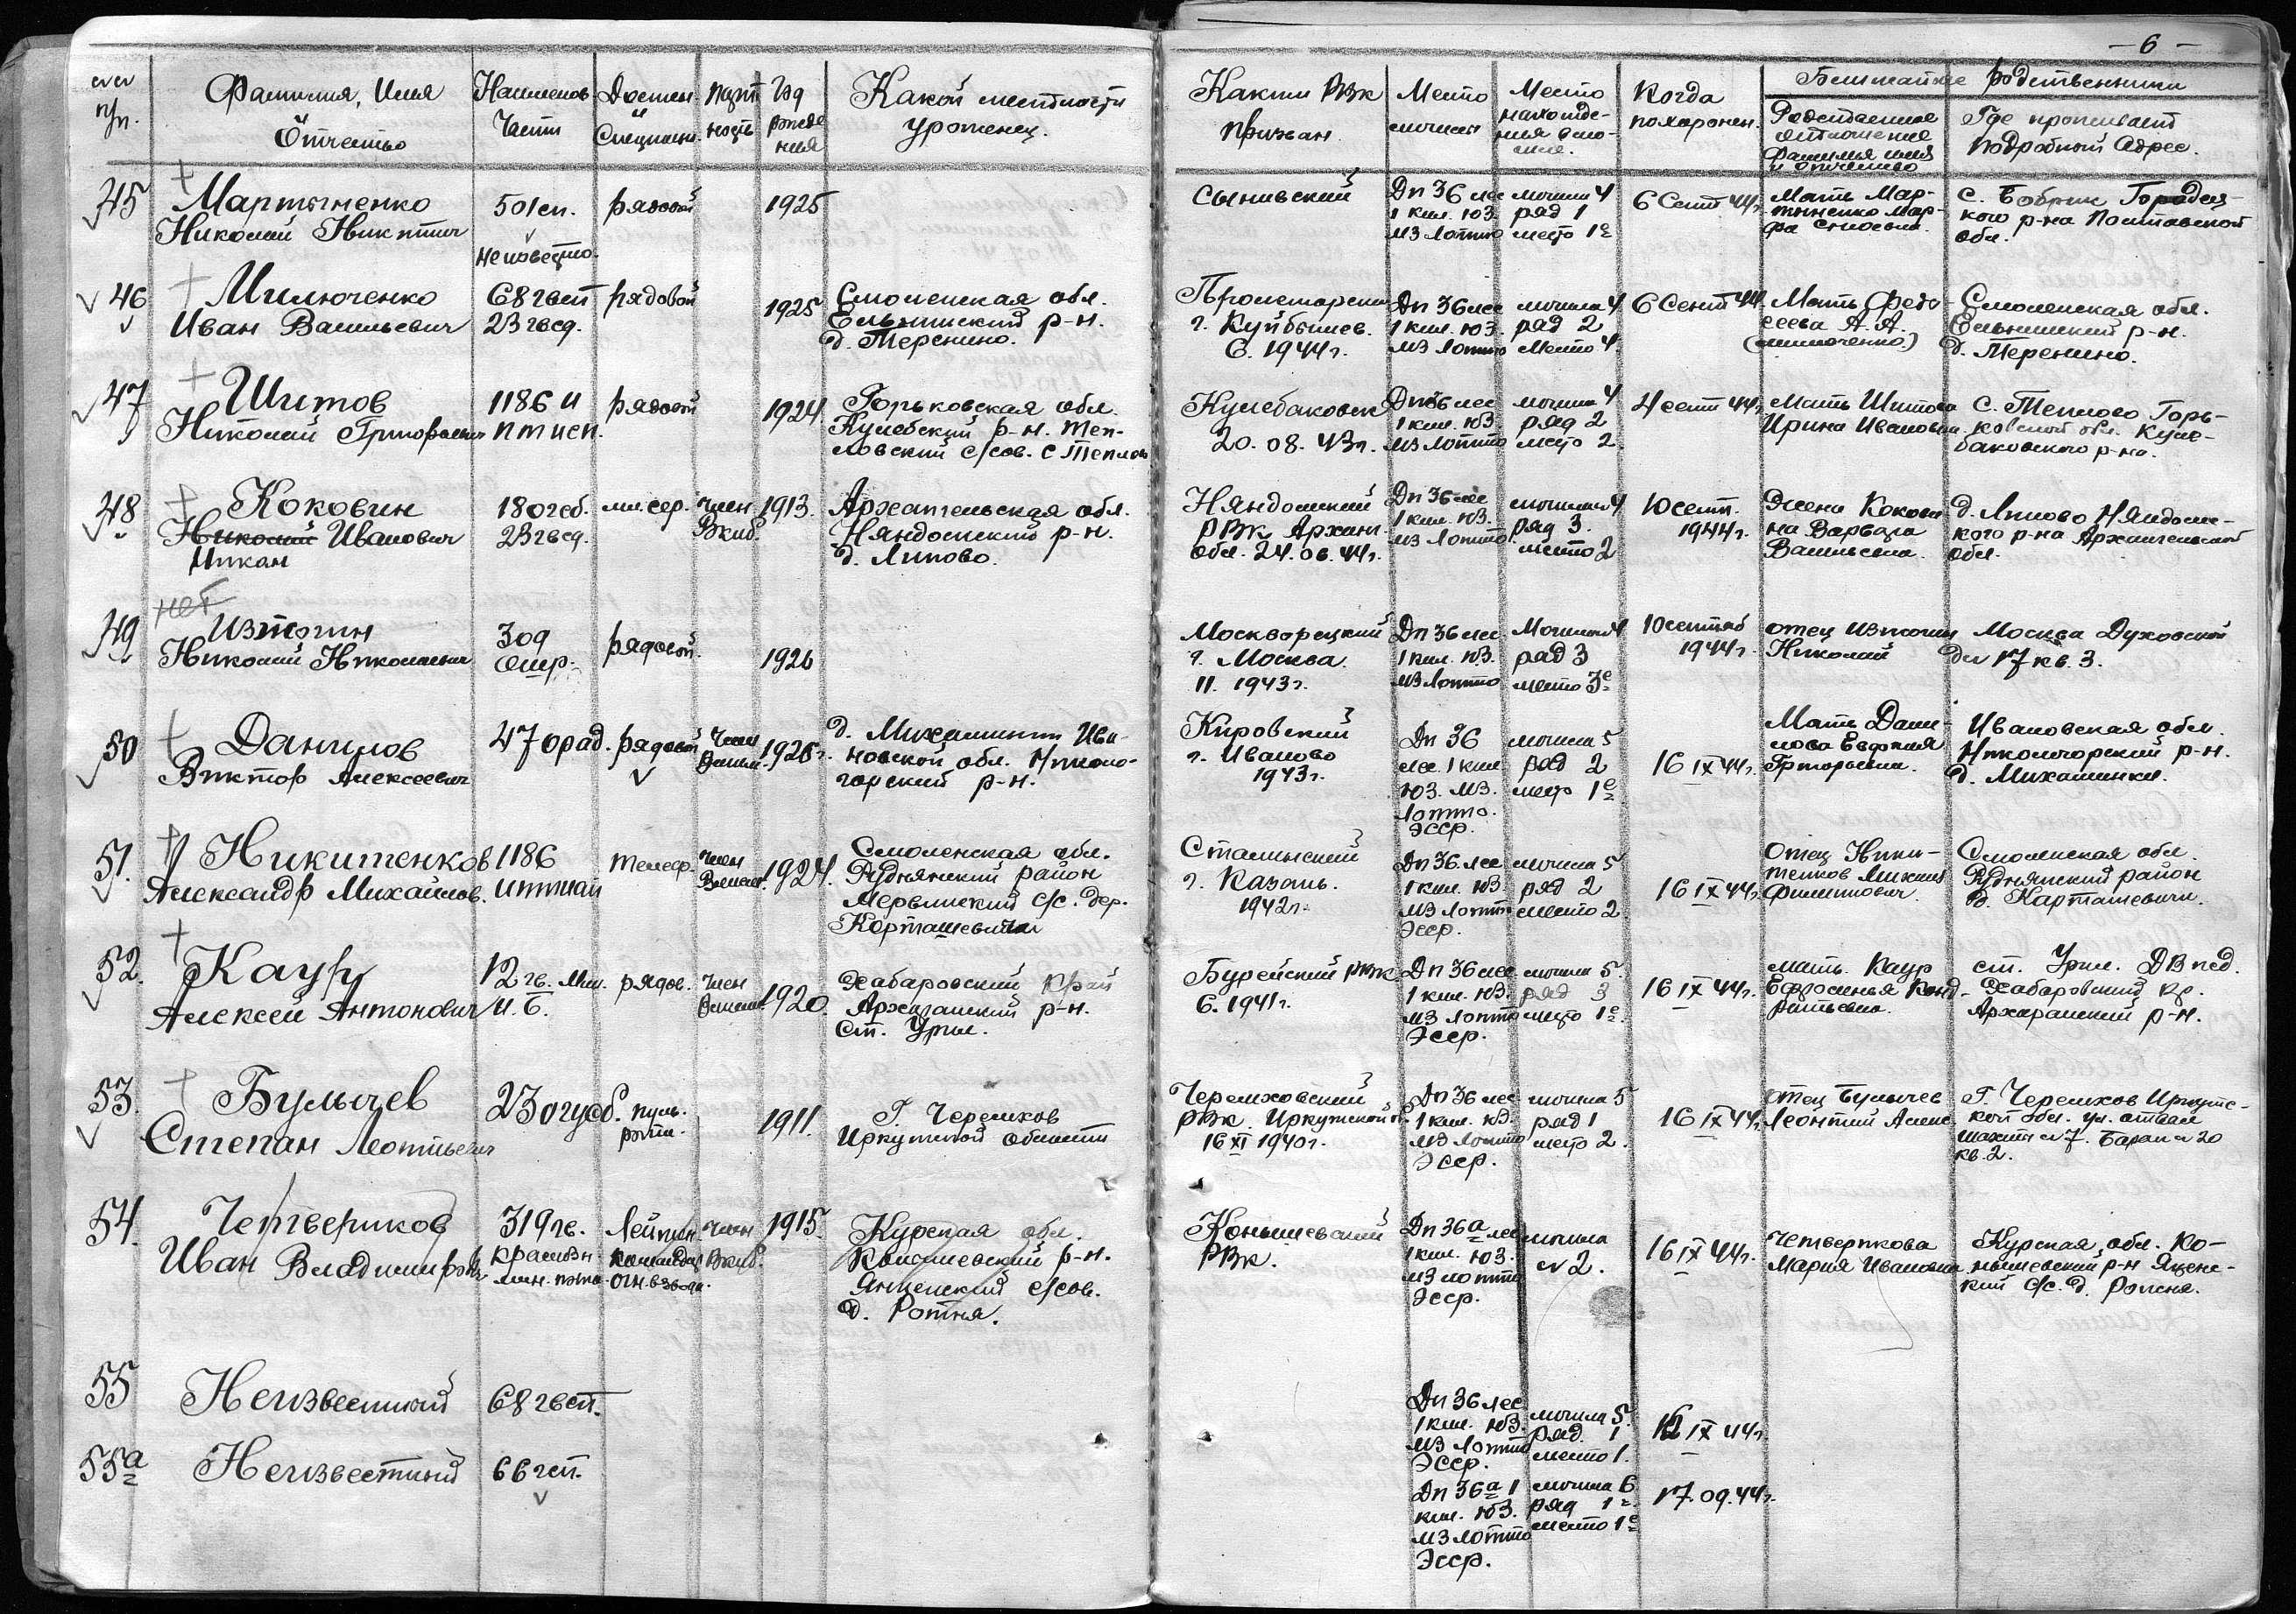 - 6 -
№№ п/п.
Фамилия, Имя
и
Отчество
Наименов
Части
Должн.
и
Специальн.
парт
ность
Год
рожде
ния
Какой местности
уроженец.
Каким РВК
призван.
Место
могилы
Место
нахожде-
ния в мо-
гиле.
Когда
похоронен.
Ближайшие родственники
Родственное
отношение
Фамилия имя
и отчество
Где проживает
подробный адрес.
45
Мартыненко
Николай Никитич
501 сп.
неизвестно.
рядовой
1925
Сынивский
Дп 36 лес
1 клм. ЮЗ.
мз Лотто
могила 4
ряд 1
место 1е
6 Сент 44г.
Мать Мар-
тыненко Мар-
фа
с. Бобрик Городец-
кого р-на Полтавской
обл.
46
Милюченко
Иван Васильевич
68 гвсп
23 гвсд.
рядовой
1925
Смоленская обл.
Ельнинский р-н.
д. Теренино.
Пролетарским
г. Куйбышев.
6. 1944г.
Дп 36 лес
1 клм. ЮЗ.
мз Лотто
могила 4
ряд 2
место 4.
6 Сент 44
Мать Федо-
сеева А. А.
(Милюченко)
Смоленская обл.
Ельнинский р-н.
д. Теренино.
47
Шитов
Николай Григорьевич
1186 И
птисп.
рядовой
1924
Горьковская обл.
Кулебский р-н. Теп-
ловский с/сов. с Теплово
Кулебаковск
20. 08. 43г.
Дп 36 лес
1 клм. ЮЗ
мз Лотто
могила 4
ряд 2
место 2
4 сент 44г.
Мать Шитова
Ирина Ивановна
с. Теплово Горь-
ковской обл. Куле-
баковского р-на.
48
Коковин
Николай Иванович
Никан
180 гсб.
23 гвсд.
мл. сер.
член
Вкпб.
1913.
Архангельская обл.
Няндомский р-н.
д. Липово.
Няндомский
РВК Архан.
обл. 24. 06. 44г.
Дп 36 лес
1 клм. ЮЗ.
мз Лотто
могила 4
ряд 3.
место 2
10 сент.
1944г.
Жена Кокови-
на Варвара
Васильевна.
д. Липово Няндомс-
кого р-на Архангельской
обл.
нет
49
Изтогин
Николай Николаевич
309
рядовой.
1926
Москворецкий
г. Москва.
11. 1943г.
Дп 36 лес.
1 клм. ЮЗ.
мз Лотто
Могила 4
ряд 3
место 3е
10 сентяб
1944г.
отец Изтогин
Николай
Москва Духовской
дм 17 кв. 3.
50
Данилов
Виктор Алексеевич
47 орад.
рядовой
Член
Влксм.
1926г.
д. Михалишки Ива-
новской обл. Николо-
горский р-н.
Кировский
г. Иваново
1943г.
Дп 36
лес. 1 клм
ЮЗ. мз.
Лотто.
Эсср.
могила 5
ряд 2
место 1е
16 IX 44г.
Мать Дани-
лова Евфкия
Григорьевна.
Ивановская обл.
Николгорский р-н.
д. Михалишки.
51.
Никитенков
Александр Михайлов.
1186
иптап
телеф.
Член
Влксм.
1924.
Смоленская обл.
Руднянский район
Мервинский с/с. дер.
Корташевичи
Сталинский
г. Казань.
1942г.
Дп 36 лес
1 клм. ЮЗ
мз Лотто
Эсср.
могила 5
ряд 2
место 2
16 IX 44г.
Отец Ники-
тенков Михаил
Филиппович.
Смоленская обл.
Руднянский район
д. Карташевичи.
52.
Каур
Алексей Антонович
12 гв. Мин.
И. Б.
рядов.
Член
Влксм.
1920.
Хабаровский Край
Архаринский р-н.
ст. Урил.
Бурейский РВК
6. 1941г.
Дп 36 лес
1 клм. ЮЗ.
мз Лотто
Эсср.
могила 5.
ряд 3
место 1е.
16 IX 44г.
мать. Каур
Ефросинья Конд-
ратьевна.
ст. Урил. ДВжд.
Хабаровский кр.
Архаринский р-н.
53.
Булычев
Степан Леонтьевич
230 гусб.
пуль.
1911.
Г. Черемхов
Иркутской области
Черемховский
РВк. Иркутской о.
16 XI 1940г.
Дп 36 лес
1 клм. ЮЗ.
мз Лотто
Эсср.
могила 5
ряд 1
место 2.
16 IX 44г.
отец Булычев
Леонтий Алекс.
Г. Черемхов Иркутс-
кой обл. ул. отвал
шахты № 7. Барак № 20
кв. 2.
54.
Четвериков
Иван Владимиров.
319 гв.
красн.
мин. полк.
Лейтен.
командир
огн. взвода.
член
Вкпб.
1915.
Курская обл.
Конышевский р-н.
Яценский с/сов.
д. Ротня.
Конышевский
РВк.
Дп 36а лес
1 клм. ЮЗ.
мз Лотто
Эсср.
могила
№ 2.
16 IX 44г.
Четверикова
Мария Ивановна
Курская обл. Ко-
нышевский р-н Яценс-
кий с/с. д. Ротня.
55
Неизвестный
68 гвсп.
Дп 36 лес
1 клм. ЮЗ.
мз Лотто
Эсср.
могила 5.
ряд. 1
место 1.
16 IX 44г.
55а
Неизвестный
66 гсп.
Дп 36а 1
клм. ЮЗ.
мз Лотто
Эсср.
могила 6
ряд 1е
место 1е
17. 09. 44г.